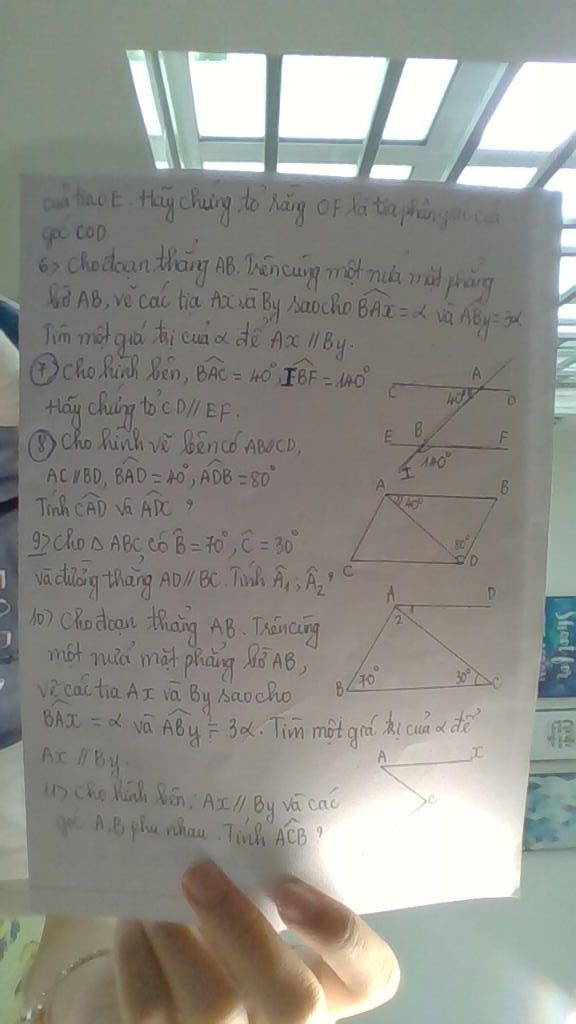 của tia OE. Hãy chứng tỏ rằng OF là tia phân giác của
góc COD
6> Cho đoạn thẳng AB. Trên cùng một nửa mặt phẳng
bờ AB, vẽ các tia Ax và By sao cho BAx = α và ABy = 3α
Tìm một giá trị của α để Ax // By.
7 Cho hình bên, BAC = 40°, IBF = 140°
Hãy chứng tỏ CD // EF.
A
C
40°
D
E
B
F
140°
I
8 Cho hình vẽ bên có AB//CD,
AC // BD, BAD = 40°, ADB = 80°
Tính CAD và ADC ?
A
B
40°
80°
C
D
9> Cho Δ ABC có B̂ = 70°, Ĉ = 30°
và đường thẳng AD // BC. Tính Â1; Â2 ?
A
D
1
2
B
70°
30°
C
10> Cho đoạn thẳng AB. Trên cùng
một nửa mặt phẳng bờ AB,
vẽ các tia Ax và By sao cho
BAx = α và ABy = 3α. Tìm một giá trị của α để
Ax // By.
11> Cho hình bên, Ax // By và các
góc A, B phụ nhau. Tính ACB ?
A
x
C
Shoot
for